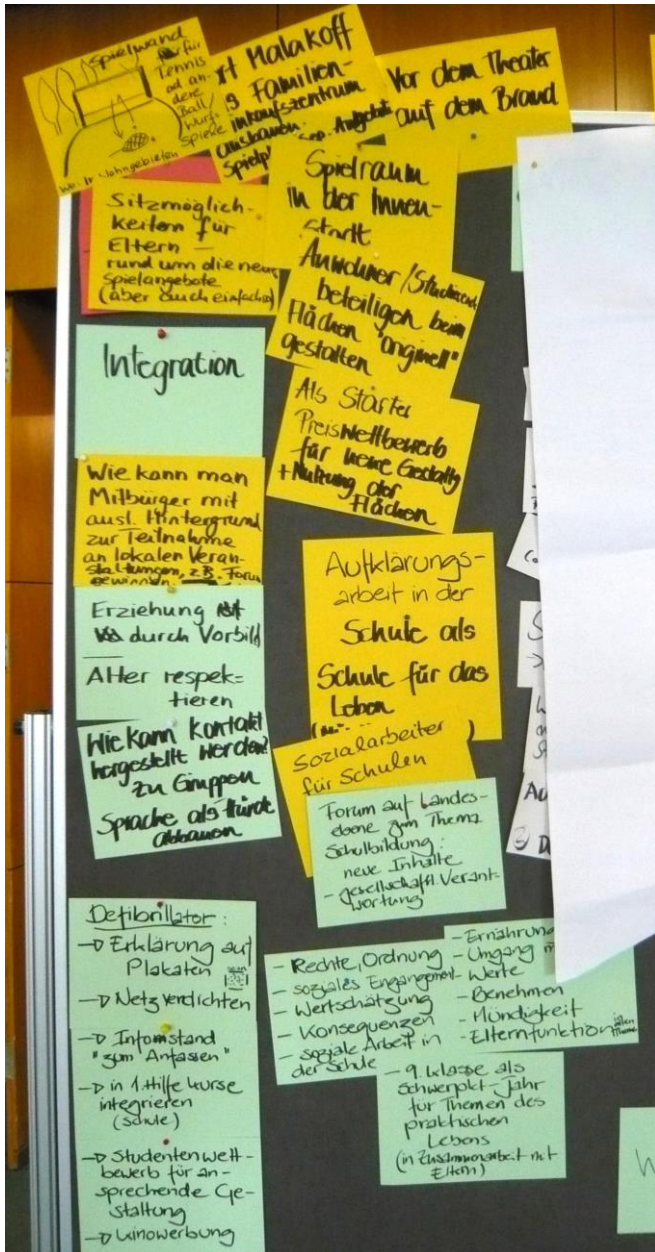 Spielwand für
Tennis
od an-
dere
Ball/
Wurf-
Spiele
Wo: In Wohngebieten
rt Malakoff
s Familien-
inkaufszentrum
ausbauen.
Spielpl Angebote
Vor dem Theater
auf dem Brand
Sitzmöglich-
keiten für
Eltern –
rund um die neuen
Spielangebote
(aber auch einfache)
Spielraum
in der Innen-
stadt
Anwohner/Studierende
beteiligen beim
Flächen "originell"
gestalten
Als Starter
Preiswettbewerb
für kleine Gestaltg
+ Nutzung der
Flächen
Integration
Wie kann man
Mitbürger mit
ausl. Hintergrund
zur Teilnahme
an lokalen Veran-
staltungen, z.B. Forum
gewinnen.
Erziehung
durch Vorbild
Alter respek-
tieren
Wie kann Kontakt
hergestellt werden?
zu Gruppen
Sprache als Hürde
abbauen
Aufklärungs-
arbeit in der
Schule als
Schule für das
Leben
Sozialarbeiter
für Schulen
Forum auf Landes-
ebene zum Thema
Schulbildung:
neue Inhalte
- gesellschaftl. Verant-
wortung
Defibrillator:
→ Erklärung auf
Plakaten
→ Netz verdichten
→ Infostand
"zum Anfassen"
→ in 1. Hilfe Kurse
integrieren
(Schule)
→ Studentenwett-
bewerb für an-
sprechende Ge-
staltung
→ Kinowerbung
- Rechte, Ordnung
- soziales Engangement
- Wertschätzung
- Konsequenzen
- soziale Arbeit in
der Schule
- Ernährung
- Umgang m
- Werte
- Benehmen
- Mündigkeit
- Elternfunktion
- 9. Klasse als
Schwerpkt-Jahr
für Themen des
praktischen
Lebens
(in Zusammenarbeit mit
Eltern)